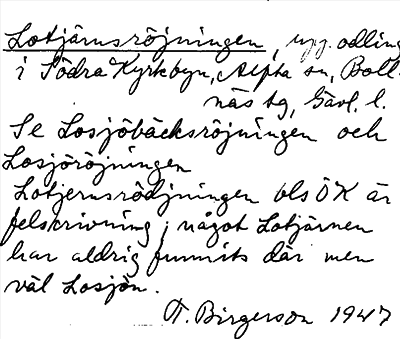 Lotjärnsröjningen, uppodling
i Södra Kyrkbyn, Alfta sn, Boll-
näs tg, Gävl. l.
Se Losjöbäcksröjningen och
Losjöröjningen
Lotjernsrödjningen bls ÖK är
felskrivning; något Lotjärnen
har aldrig funnits där men
väl Losjön.
T. Birgerson 1947